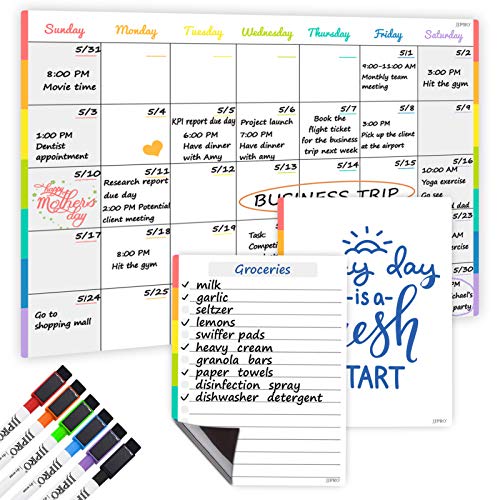 JJPRO
Sunday Monday Tuesday Wednesday Thursday Friday Saturday
5/31
8:00 PM
Movie time
5/1
9:00-11:00 AM
Monthly team
meeting
5/2
8:00 PM
Hit the gym
5/3
1:00 PM
Dentist
appointment
5/4
5/5
KPI report due day
6:00 PM
Have dinner
with Amy
5/6
Project launch
7:00 PM
Have dinner
with Amy
5/7
Book the
flight ticket
for the business
trip next week
5/8
3:00 PM
Pick up the client
at the airport
5/9
5/10
Happy
Mother's
day
5/11
Research report
due day
2:00 PM Potential
client meeting
5/12
5/13
5/14
5/15
BUSINESS TRIP
5/16
10:00 AM
Yoga exercise
Go see
5/17
5/18
8:00 PM
Hit the gym
5/19
Task:
5/23
5/24
Go to
shopping mall
5/25
5/30
PM
Michael's
party
Groceries
milk
garlic
seltzer
lemons
swiffer pads
heavy cream
granola bars
paper towels
disinfection spray
dishwasher detergent
JJPRO
day
is a
START
JJPRO
JJPRO
JJPRO
JJPRO
JJPRO
JJPRO
JJPRO